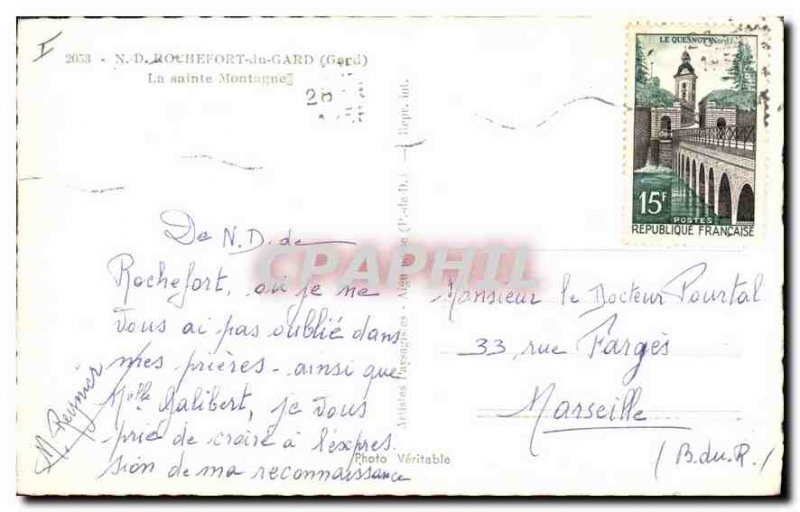 I
2053 - N.-D. ROCHEFORT-du-GARD (Gard)
La sainte Montagne
28
De N.D. de
Rochefort, où je ne
vous ai pas oublié dans
mes prières - ainsi que
Melle Galibert, je vous
prie de croire à l'expres
sion de ma reconnaissance
M. Reynier
Photo Véritable
Artistes Paysagistes - Aigueperse (P.-de-D.) — Repr. int.
CPAPHIL
LE QUESNOY (Nord)
15F
POSTES
REPUBLIQUE FRANÇAISE
Monsieur le Docteur Pourtal
33, rue Fargès
Marseille
(B.du.R.)